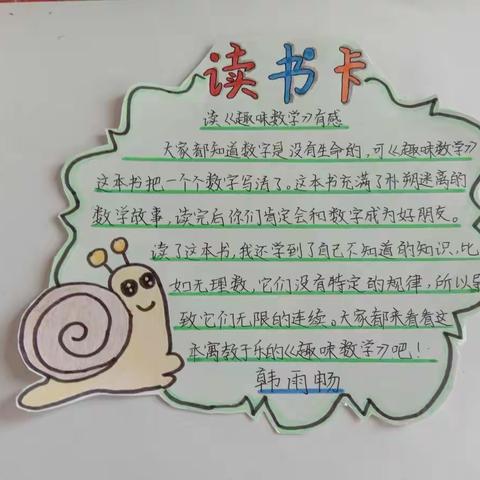 读书卡
读《趣味数学》有感
大家都知道数字是没有生命的,可《趣味数学》
这本书把一个个数字写活了。这本书充满了扑朔迷离的
数学故事,读完后你们肯定会和数字成为好朋友。
读了这本书,我还学到了自己不知道的知识,比
如无理数,它们没有特定的规律,所以导
致它们无限的连续。大家都来看看这
本寓教于乐的《趣味数学》吧!
韩雨畅